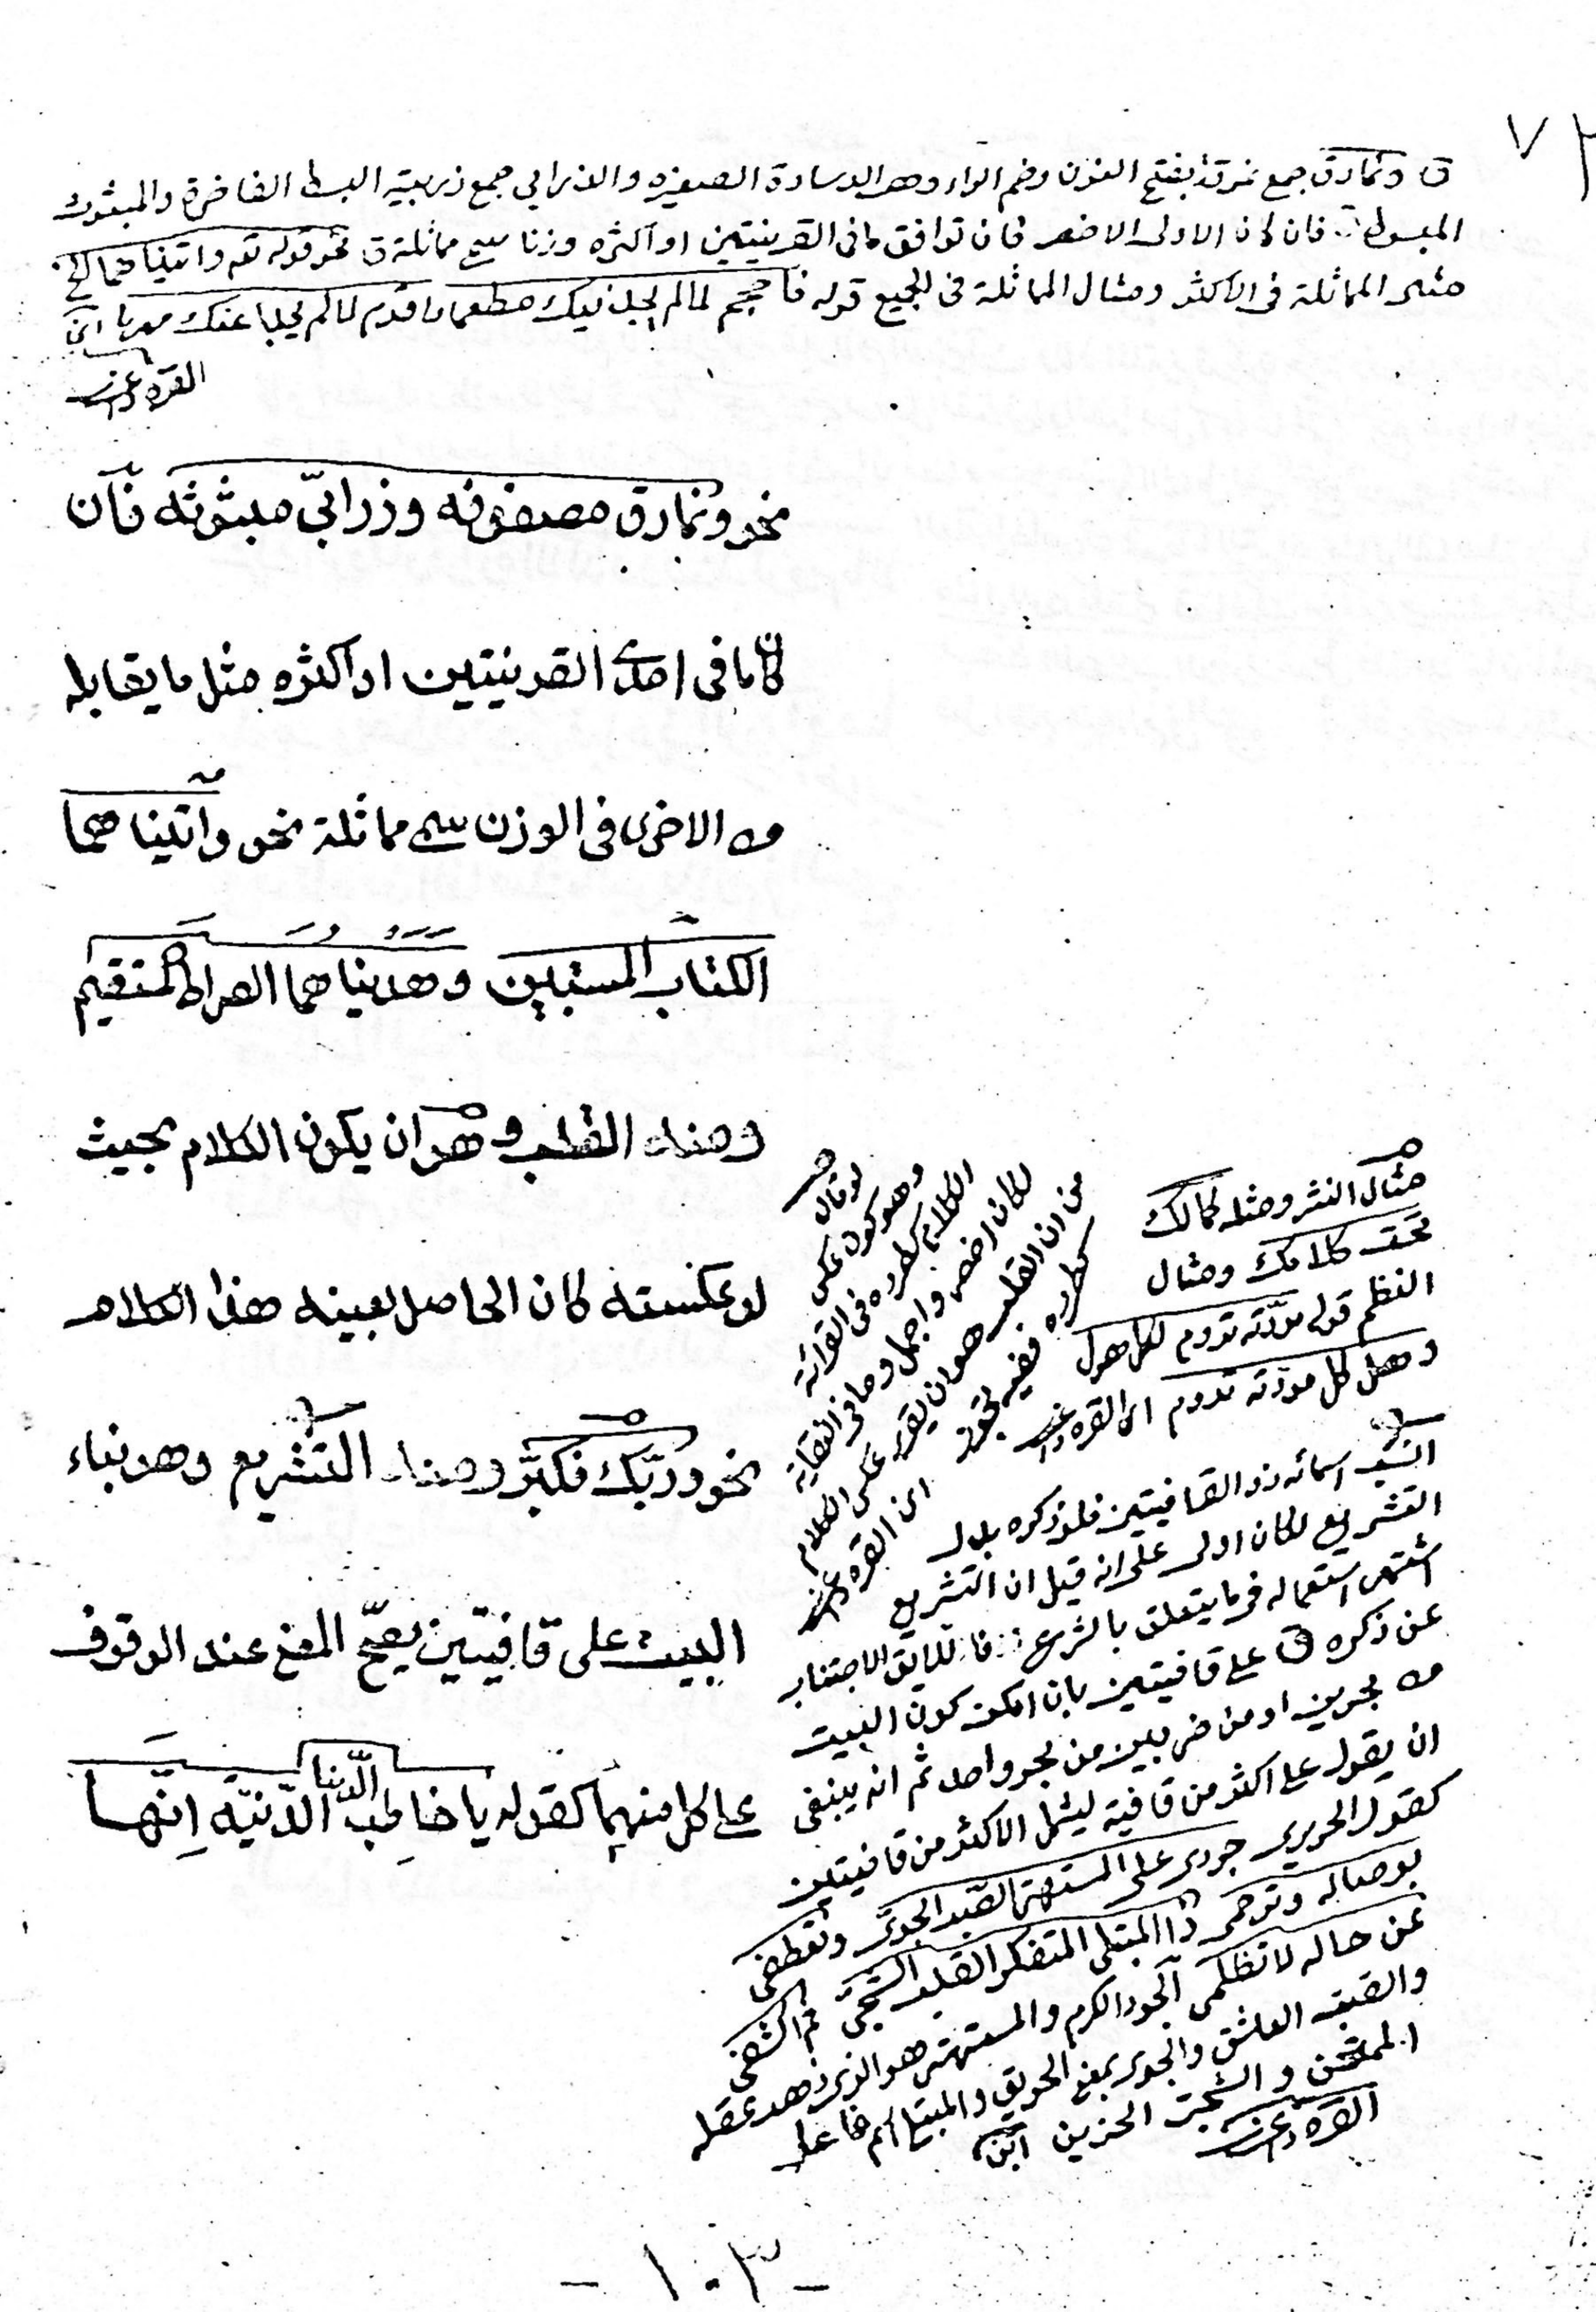 ٧٢
ق ونمارق جمع نمرقة بفتح النون وضم الراء وهو الوسادة الصغيره والذرابي جمع ذربية البسط الفاخرة والمبثوث
المبسوط فان كان الاولى الاخصر فان توافق مافى القرينتين او اكثره وزنا سمى مماثلة ق نحو قوله تعه واتيناهما الخ
مثل المماثلة فى الاكثر ومثال المماثلة فى الجميع قوله فاحجم لما لم يجد فيك مطعما واقدم لما لم يجد عنك مهربا ابن
القره داغى
نحو ونمارق مصفوفه وزرابىّ مبثوثه فان
كان مافى احدى القرينتين او اكثره مثل ما يقابله
من الاخرى فى الوزن سمى مماثلة نحو واتيناهما
الكتاب المستبين وهديناهما الصراط المستقيم
ومنه القلب وهو ان يكون الكلام بحيث
لو عكسته كان الحاصل بعينه هذا الكلام
نحو وربّك فكبّر ومنه التشريع وهو بناء
البيت على قافيتين يصحّ المعنى عند الوقوف
على كل منهما كقوله يا خاطِب الدّنيا الدّنيّه اِنّها
لو قال
وهو كون عكس
الكلام كطرده فى القرائة
لكان اخصر واجمل وما فى النقاية
من ان القلب هو ان يقرء عكس الكلام
كطرده ففيه تجوز ابن القره داغى
مثال النثر ومثله كمالك
تحت كلامك ومثال
النظم قوله مودّته تدوم لكل هول
وهل كل مودّته تدوم ابن القره داغى
انسب اسمائه ذو القافيتين فلو ذكره بدل
التشريع لكان اولى على انه قيل ان التشريع
اشتهر استعماله فيما يتعلق بالشرع فاللايق الاجتناب
عن ذكره ق على قافيتين بان امكن كون البيت
من بحرين او من ضربين من بحر واحد ثم انه ينبغى
ان يقول على اكثر من قافية ليشمل الاكثر من قافيتين
كقول الحريرى جودى على المستهتر الصّبّ الجوى وتعطفى
بوصاله وترحمى ذا المبتلى المتفكر القلب الشجىّ ثم اكشفى
عن حاله لا تظلمى الجود الكرم والمستهتر هو الذى ذهب عقله
والصّب العاشق والجوى بمعنى الحريق والمبتلى اسم فاعل
الممتحن والشجى الحزين ابن
القره داغى
- ١٠٣ -